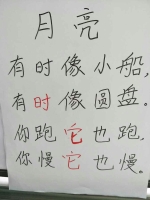 月亮
有时像小船,
有时像圆盘。
你跑它也跑。
你慢它也慢。